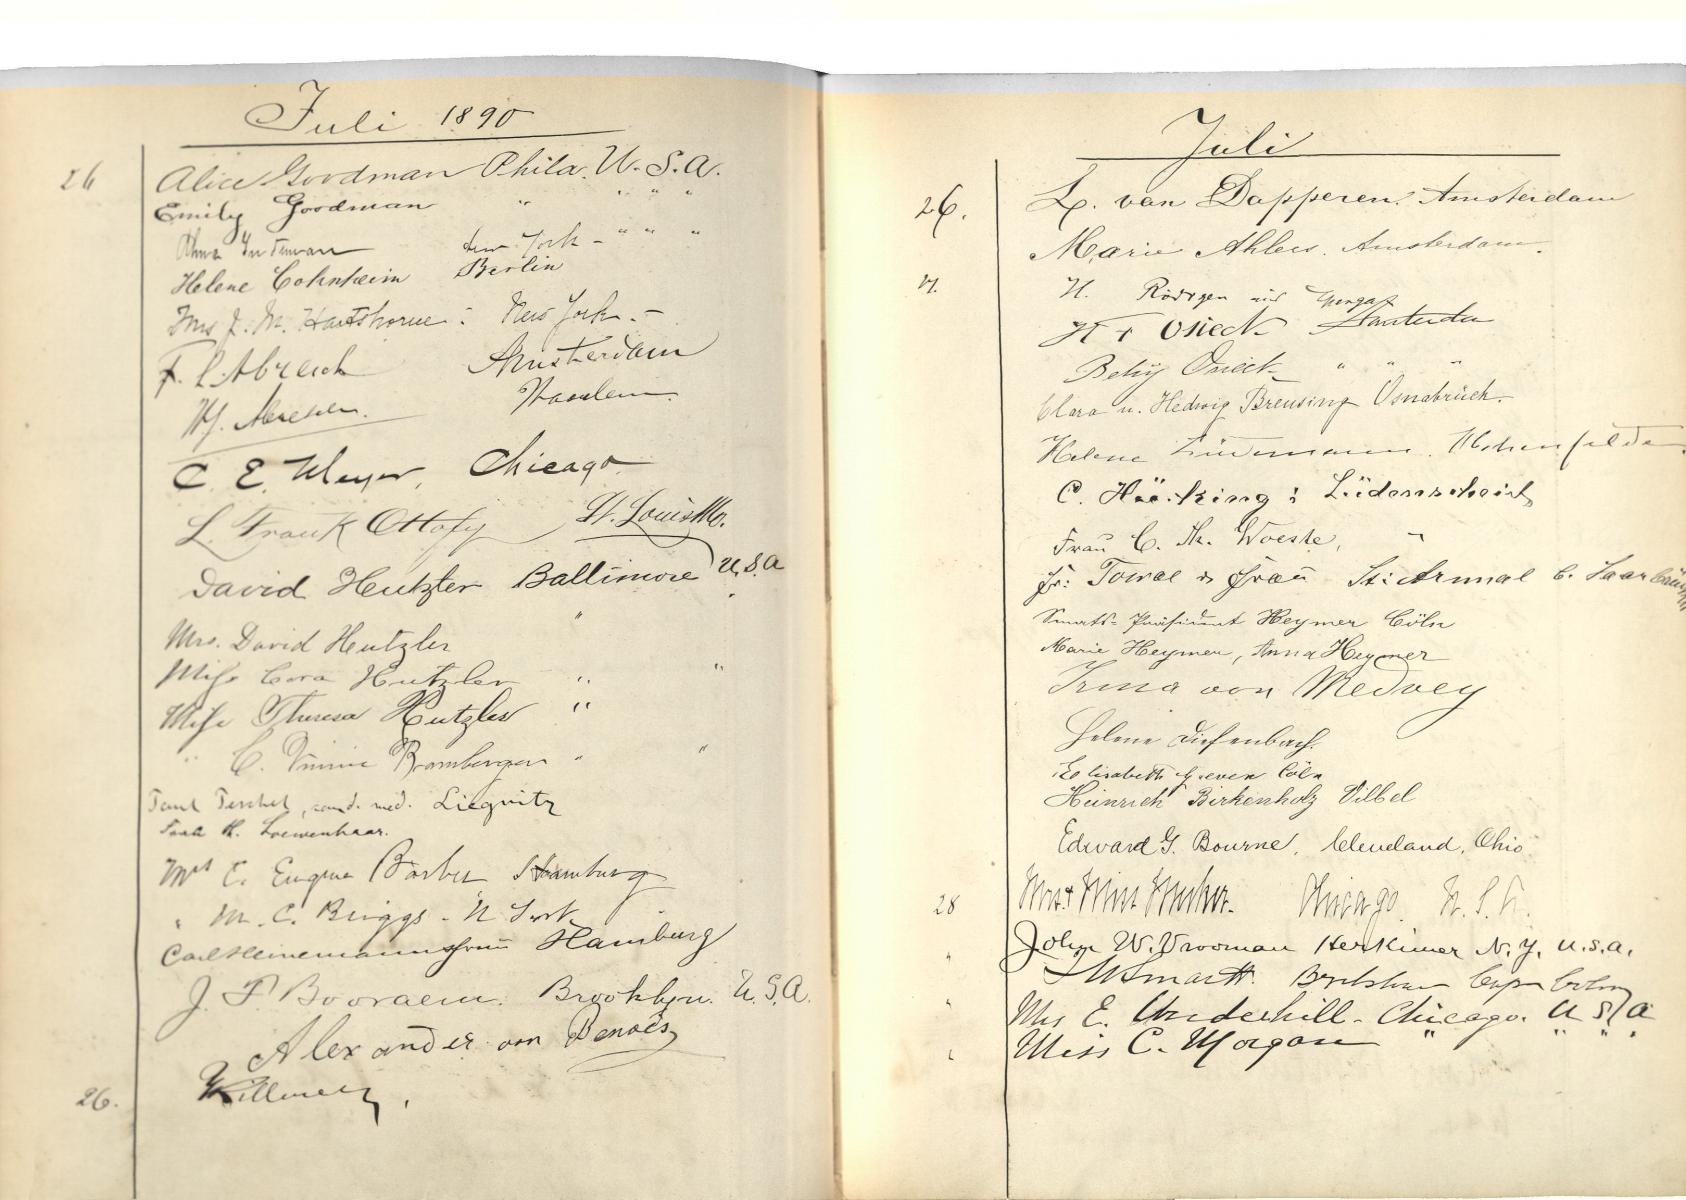 Juli 1890
26 Alice Goodman Phila. U. S. A.
Emily Goodman " " " "
New York - " " "
Helene Cohnheim Berlin
Mrs J. M. Hartshorne. New York. -
F. L. Abresch Amsterdam
Abresch. Haarlem.
C. E. Meyer, Chicago
L. Frank Ottofy St. Louis Mo.
David Hutzler Baltimore U.S.A
Mrs. David Hutzler "
Miss Cora Hutzler " "
Miss Theresa Hutzler "
" C. Bamberger " "
cand. med. Liegnitz
Loewenhaar.
E. Eugene Barber Hamburg
" M. C. Briggs - N York
Carl Heinemann & Frau Hamburg
J. T. Booraem. Brooklyn. U. S. A.
Alexander von Benois
26.
Juli
26. L. van Dapperen. Amsterdam
Marie Ahlers. Amsterdam.
27. H.
Osieck Amsterdam
Betsy Osieck " " "
Clara u. Hedwig Breusing Osnabrück.
Helene Lindemann.
C. Hücking: Lüdenscheid
Frau C. Th. Woeste, "
Fr: Frau St: Arnual b. Saarbrücken
Senats-Präsident Heymer Cöln
Marie Heymer, Anna Heymer
Irma von Medvey
Helene Diefenbach.
Elisabeth Greven Cöln
Heinrich Birkenholz Vilbel
Edward G. Bourne, Cleveland, Ohio
28 Mrs & Miss Chicago. U. S. A.
" John W. Vrooman Herkimer N. Y. U.S.A.
Smartt.
" Mrs E. Underhill - Chicago. U S A
" Miss C. Morgan " " " "